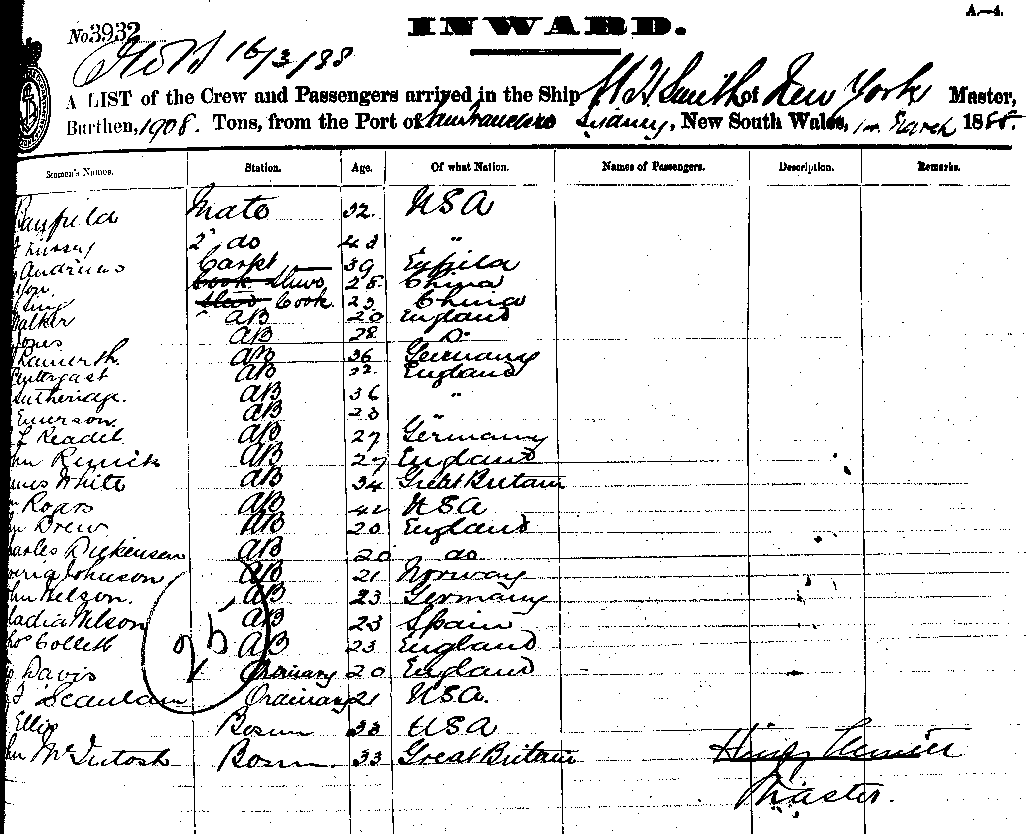 A.—4.
No 3932
INWARD.
16/3/88
A LIST of the Crew and Passengers arrived in the Ship W H Smith of New York Master,
Burthen, 1908. Tons, from the Port of San Francisco Sydney, New South Wales, March 1888.
Seamen's Names. Station. Age. Of what Nation. Names of Passengers. Description. Remarks.
Bayfield Mate 32. USA
2" do 43 "
Andrews Carpt 39
Yon. Cook Stewd 28. China
Sing Stewd Cook. 23 China
Walker AB 20 England
Jones AB 28 Do
AB 36 Germany
AB 22 England
Sutheridge. AB 36 "
Emerson AB 23 "
Keadel AB 27 Germany
hn Renick AB 27 England
ames White AB 34 Great Britain
Rogrs AB 42 USA
Drew AB 20 England
harles Dickenson AB 20 do
Johnson AB 21 Norway
ohn Nelson. AB 23 Germany
Wilson AB 23 Spain
hos Collett AB 23 England
Davis Ordinary 20 England
Scanlan Ordinary 21 USA.
Ellis Bosun 33 USA
hn McIntosh Bosun 33 Great Britain
25
Master.